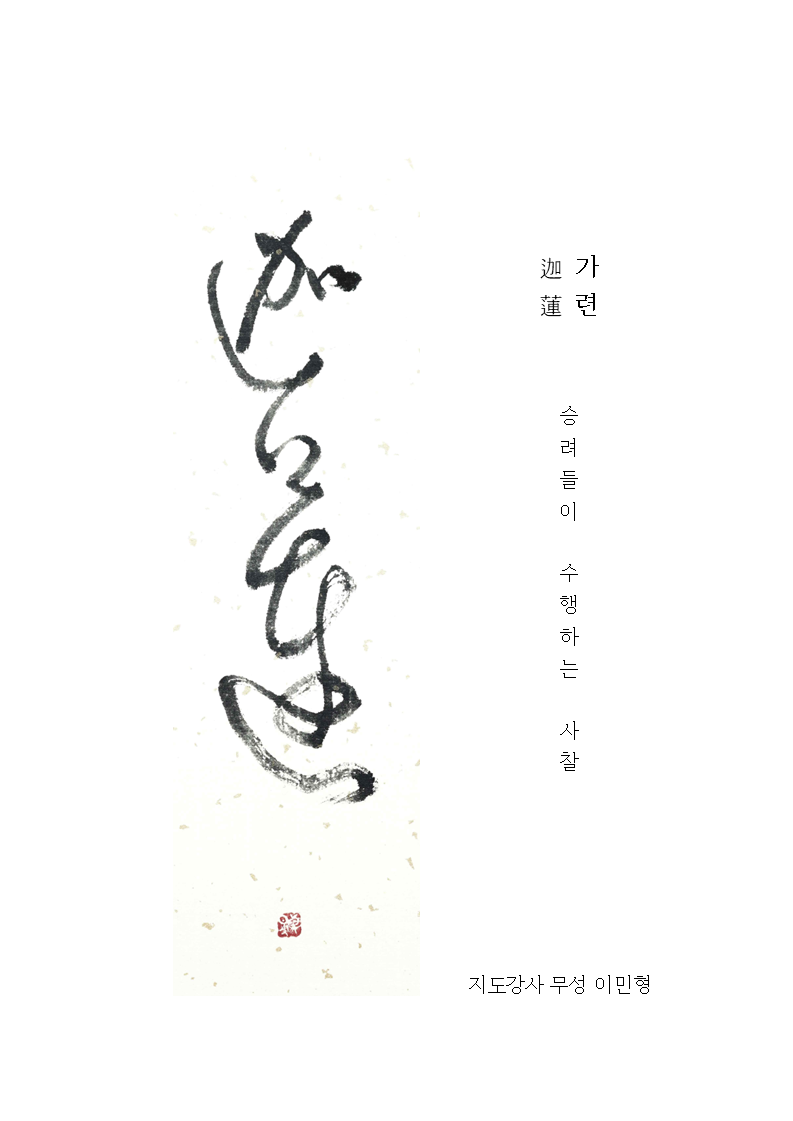 迦蓮
가련
迦蓮
승려들이 수행하는 사찰
지도강사 무성 이민형